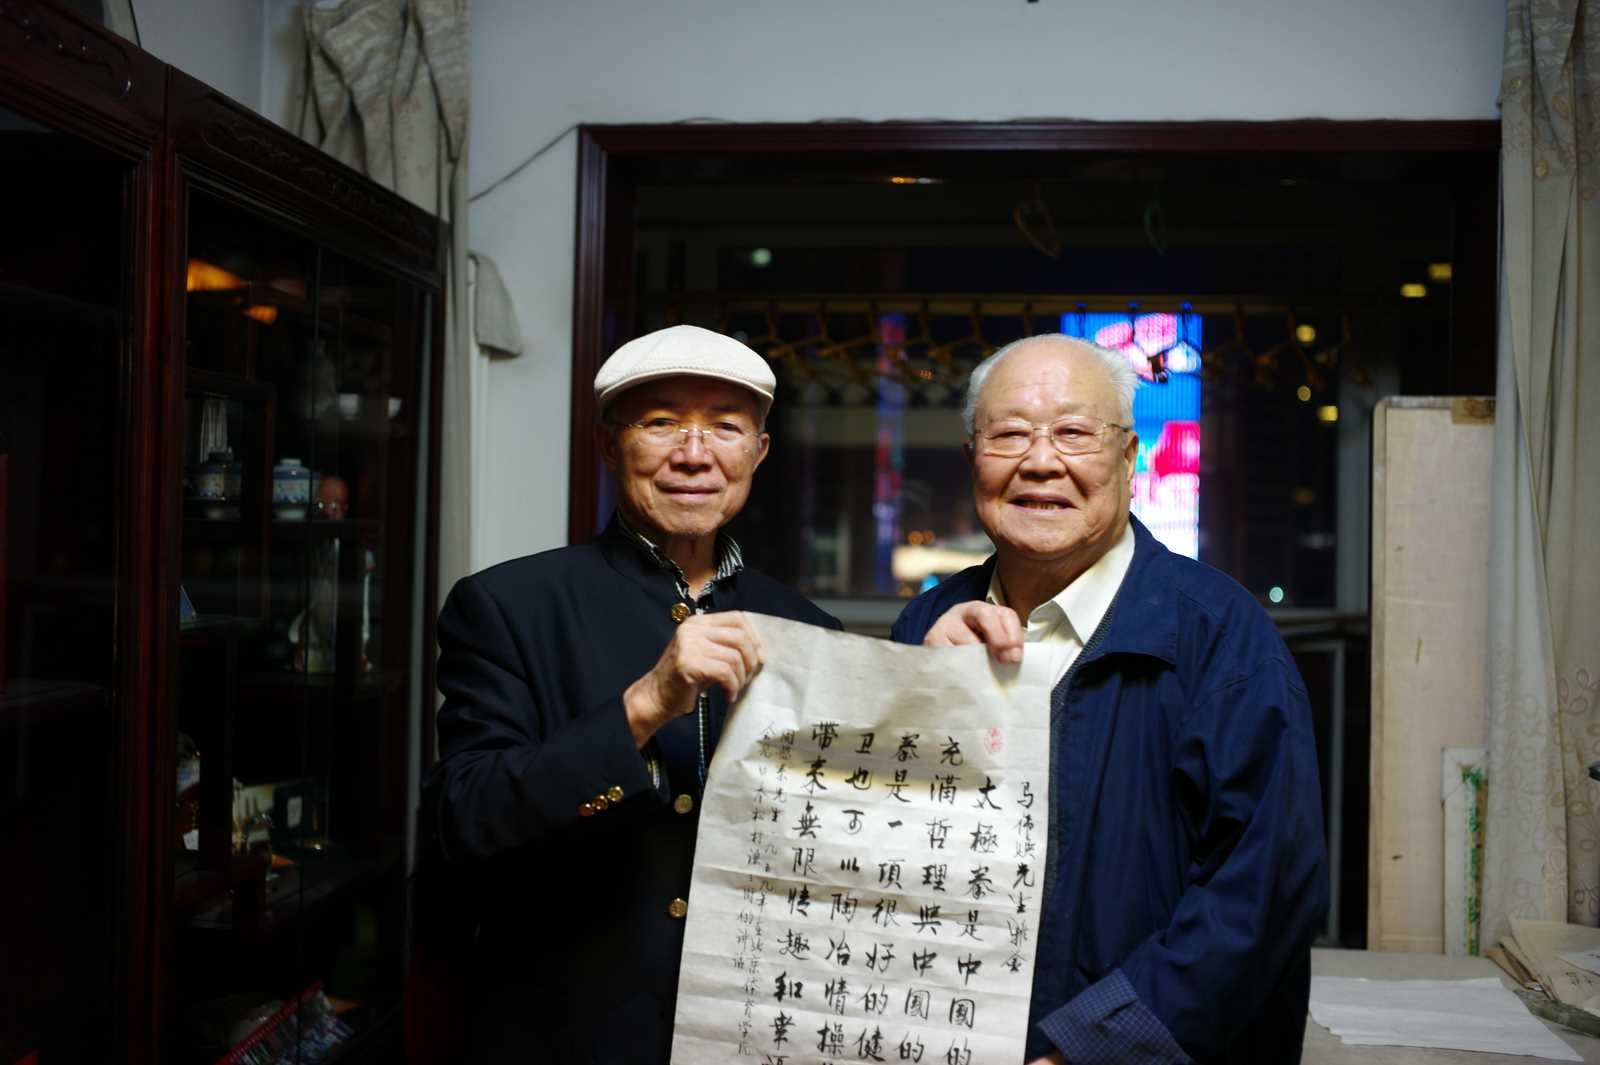 马伟焕先生雅念
太極拳是中國的
充滿哲理與中國的
拳是一項很好的健
卫也可以陶冶情操
帶來無限情趣和幸
周恩来先生一九五九年在北京体育学院
松村謙三